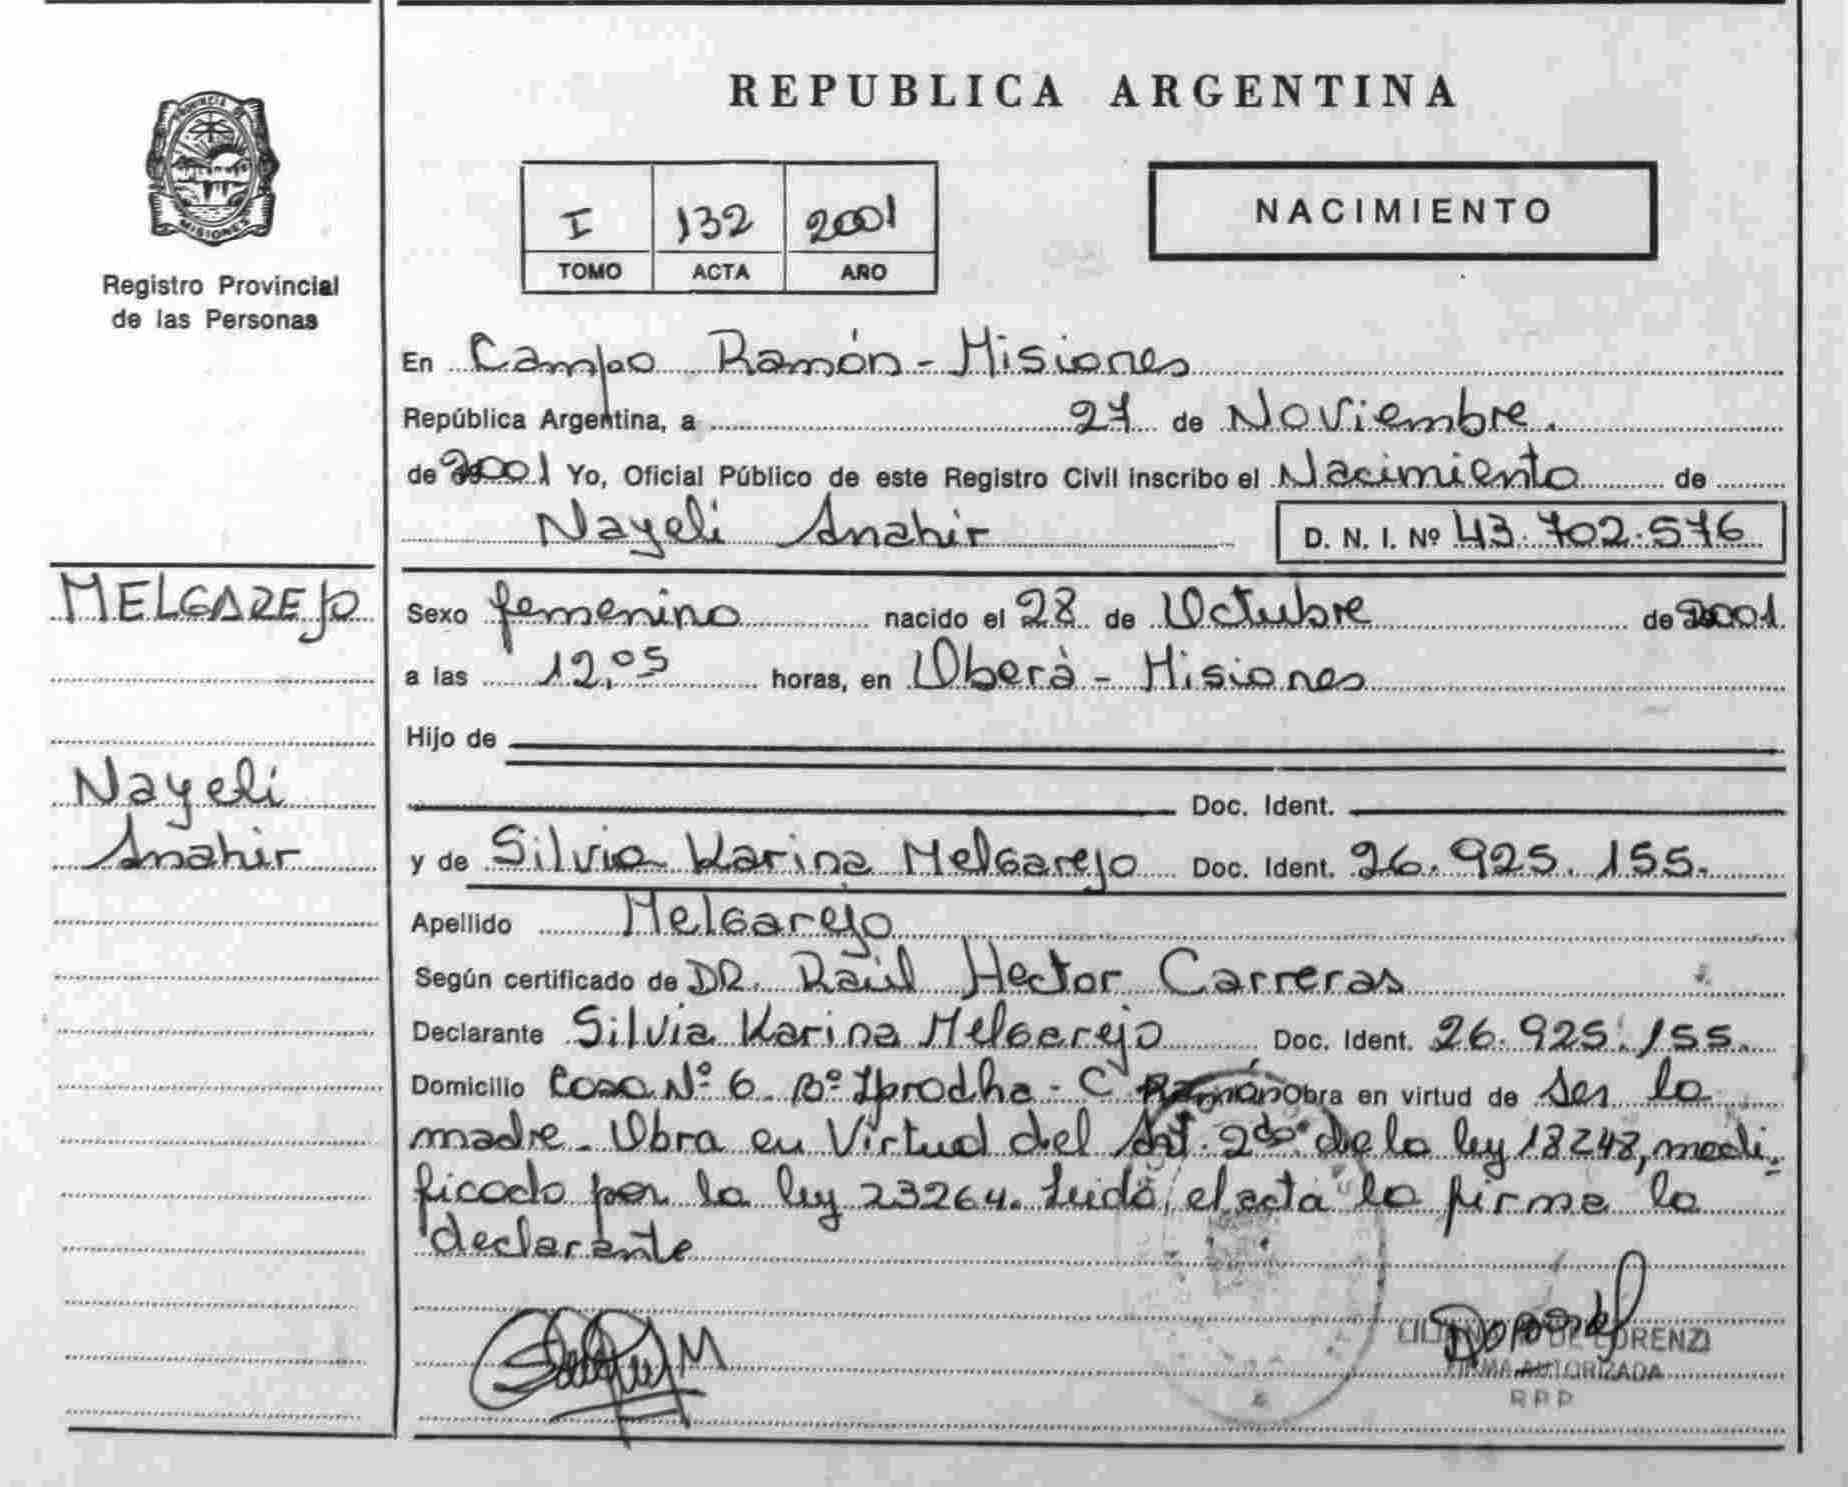 PROVINCIA DE
MISIONES
Registro Provincial
de las Personas
MELGAREJO
Nayeli
Anahir
REPUBLICA ARGENTINA
I 132 2001
TOMO ACTA AÑO
NACIMIENTO
En Campo Ramón - Misiones
República Argentina, a 27 de Noviembre.
de 2001 Yo, Oficial Público de este Registro Civil inscribo el Nacimiento de
Nayeli Anahir D. N. I. Nº 43.702.576
Sexo femenino nacido el 28 de Octubre de 2001
a las 12,05 horas, en Oberá - Misiones
Hijo de
Doc. Ident.
y de Silvia Karina Melgarejo Doc. Ident. 26.925.155.
Apellido Melgarejo
Según certificado de DR. Raúl Hector Carreras
Declarante Silvia Karina Melgarejo Doc. Ident. 26.925.155.
Domicilio Casa Nº 6. Bº Iprodha - Cº Ramón Obra en virtud de ser la
madre. Obra en Virtud del Art. 2do. de la ley 18248, modi-
ficado por la ley 23264. Leida, el acta la firma la
declarante
DE LORENZI
FIRMA AUTORIZADA
R P P